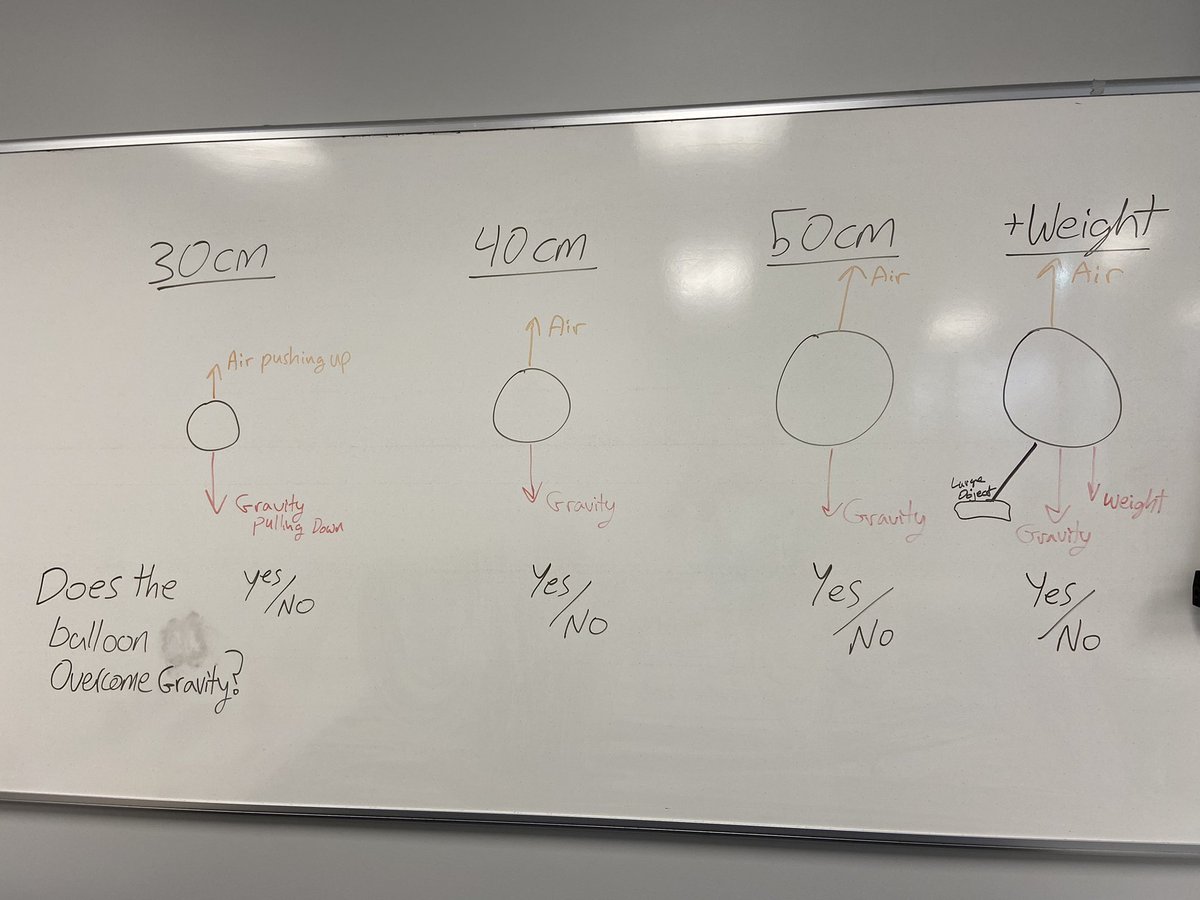 30cm
40cm
50cm
+Weight
Air pushing up
Gravity
pulling Down
Air
Gravity
Air
Gravity
Air
Large
Object
Gravity
Weight
Does the
balloon
Overcome Gravity?
yes/No
Yes/No
Yes/No
Yes/No